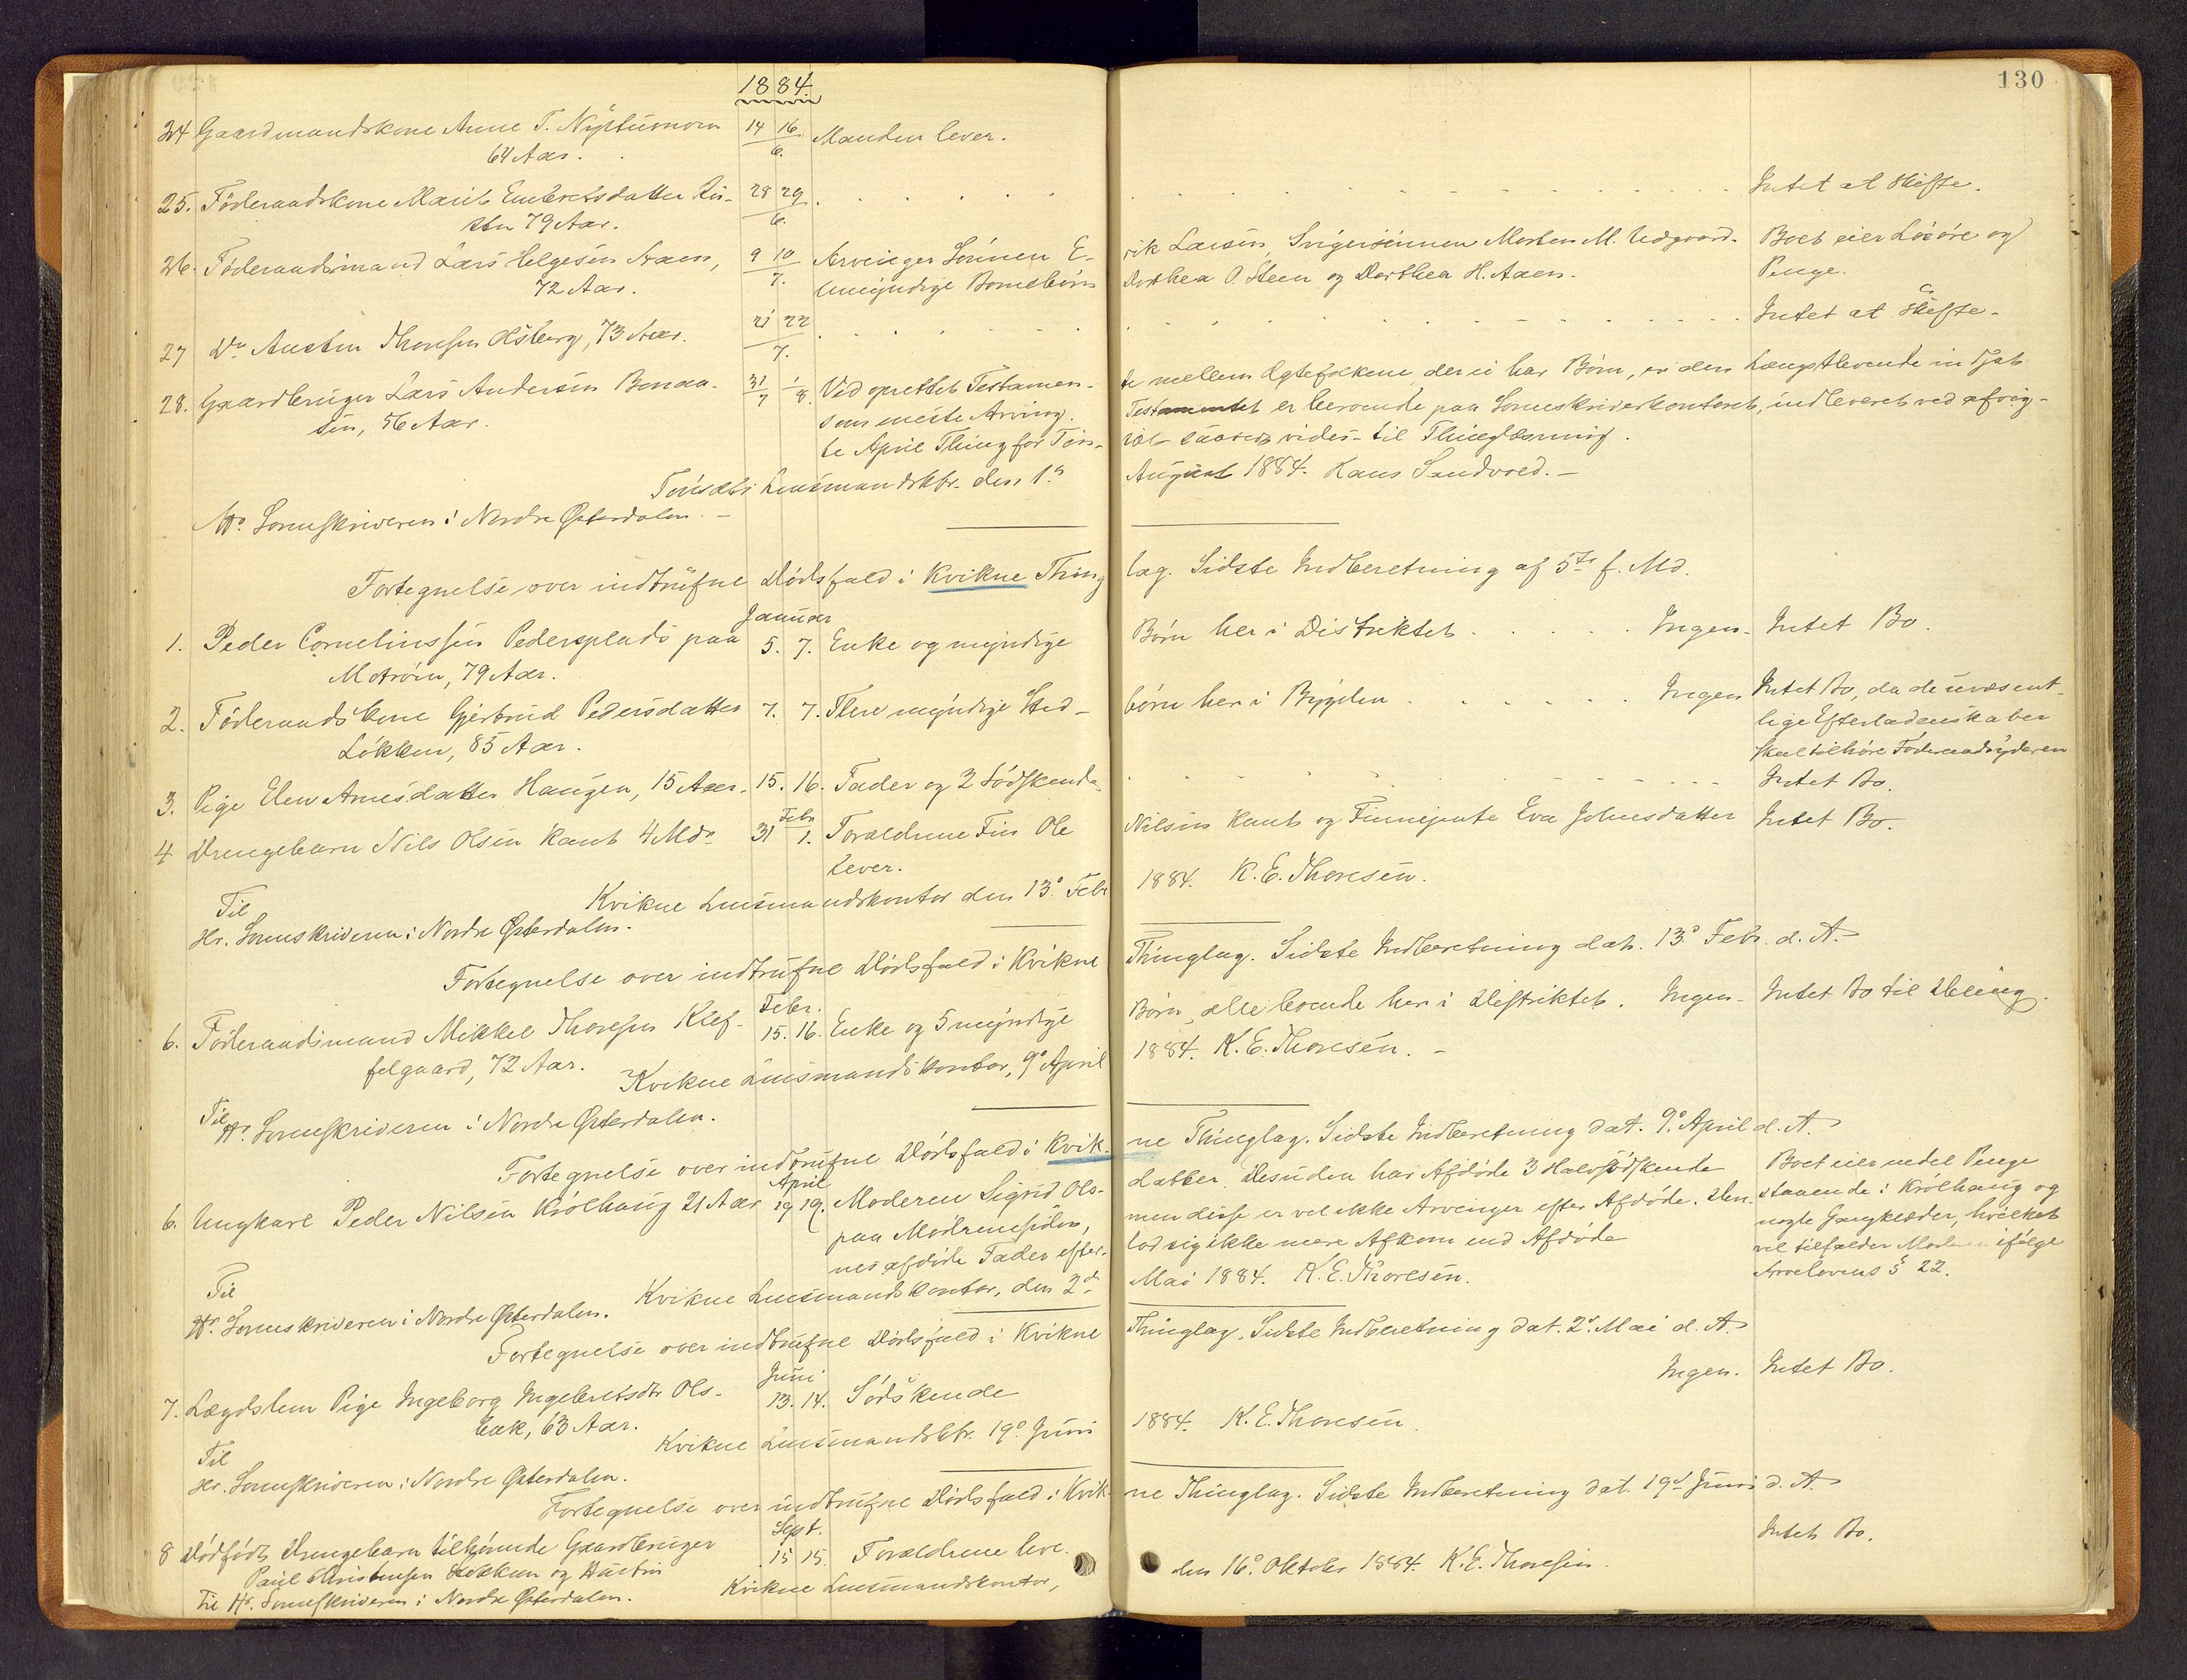 130
1884
24 Gaardmandskone Anne T. 14 16 Manden lever.
64 Aar. 6.
25. Föderaadskone Marit Embretsdatter 28 29 . . . . . Intet at skifte.
79 Aar. 6.
26. Föderaadsmand Lars Helgesen Aaen, 9 10 Arvinger Sönnen E- rik Larsen, Svigersönnen Morten M. Udgaard. Boet eier Lösöre og
72 Aar. 7. Umyndige Barnebörn Dorthea O. Steen og Dorthea H. Aaen. Penge.
27 Do Austin Thoresen Aasberg, 73 Aar. 21 22 . . . . . Intet at skifte.
7.
28. Gaardbruger Lars Andersen Bonaa- 31 1 Ved oprettet Testamen- te mellem Ægtefolkene, der ei har Börn, er den Længstlevende indsat
sen, 56 Aar. 7 8. som eneste Arving. Testamentet er beroende paa Sorenskriverkontoret, indleveret ved afvig-
te April Thing for Tön- til Thinglæsning.
Tönsets Lensmandsktr. den 1ste August 1884. Hans Sandvold.
Hr. Sorenskriveren i Nordre Østerdalen.
Fortegnelse over indtrufne Dödsfald i Kvikne Thing lag. Sidste Indberetning af 5te f. Md.
Januar
1. Peder Corneliussen Pedersplads paa 5. 7. Enke og myndige Börn her i Distriktet . . . . . Ingen. Intet Bo.
Moströen, 79 Aar.
2. Föderaadskone Gjertrud Pedersdatter 7. 7. Flere myndige Sted- börn her i Bygden . . . . . Ingen Intet Bo, da de uvæsent-
Lökken, 85 Aar. lige Efterladenskaber
skal tilhöre Föderaadsyderen
3. Pige Elen Arnesdatter Haugen, 15 Aar. 15. 16. Fader og 2 Södskende. . . . . . Intet Bo.
Febr
4 Drengebarn Nils Olsen Kant 4 Mdr 31 1. Forældrene Fin Ole Nilsen Kant og Finnejente Eva Johnsdatter Intet Bo.
lever.
Kvikne Lensmandskontor den 13de Febr 1884. K. E. Thoresen.
Til
Hr. Sorenskriveren i Nordre Østerdalen.
Fortegnelse over indtrufne Dödsfald i Kvikne Thinglag. Sidste Indberetning dat. 13de Febr. d. A.
Febr.
6. Föderaadsmand Mikkel Thoresen Klef- 15. 16. Enke og 5 myndige Börn, alle boende her i Distriktet. Ingen. Intet Bo til Deling.
felgaard, 72 Aar.
Kvikne Lensmandskontor, 9de April 1884. K. E. Thoresen.
Til
Hr. Sorenskriveren i Nordre Østerdalen.
Fortegnelse over indtrufne Dödsfald i Kvik- ne Thinglag. Sidste Indberetning dat. 9de April d. A.
April
6. Ungkarl Peder Nilsen Krölhaug 21 Aar 19 19. Moderen Sigrid Ols- datter. Desuden har Afdöde 3 Halvsödskende Boet eier endel Penge
paa Mödrenesiden, men disse er vel ikke Arvinger efter Afdöde. Den- staaende i Krölhaug og
nes afdöde Fader efter- lod sig ikke mere Afkom end Afdöde nogle Gangklæder, hvilket
vel tilfalder Moderen ifölge
Arvelovens § 22.
Kvikne Lensmandskontor, den 2den Mai 1884. K. E. Thoresen.
Til
Hr. Sorenskriveren i Nordre Østerdalen.
Fortegnelse over indtrufne Dödsfald i Kvikne Thinglag. Sidste Indberetning dat. 2den Mai d. A.
Juni
7. Lægdslem Pige Ingeborg Ingebretsdtr Ols- 13. 14. Södskende Ingen. Intet Bo.
bak, 63 Aar.
Kvikne Lensmandsktr. 19de Juni 1884. K. E. Thoresen
Til
Hr. Sorenskriveren i Nordre Østerdalen.
Fortegnelse over indtrufne Dödsfald i Kvik- ne Thinglag. Sidste Indberetning dat. 19de Juni d. A.
Sept.
8 Dödfödt Drengebarn tilhörende Gaardbruger 15 15. Forældrene leve. Intet Bo.
Paul Christensen Lökken og Hustru
Kvikne Lensmandskontor, den 16de Oktober 1884. K. E. Thoresen.
Til Hr. Sorenskriveren i Nordre Østerdalen.